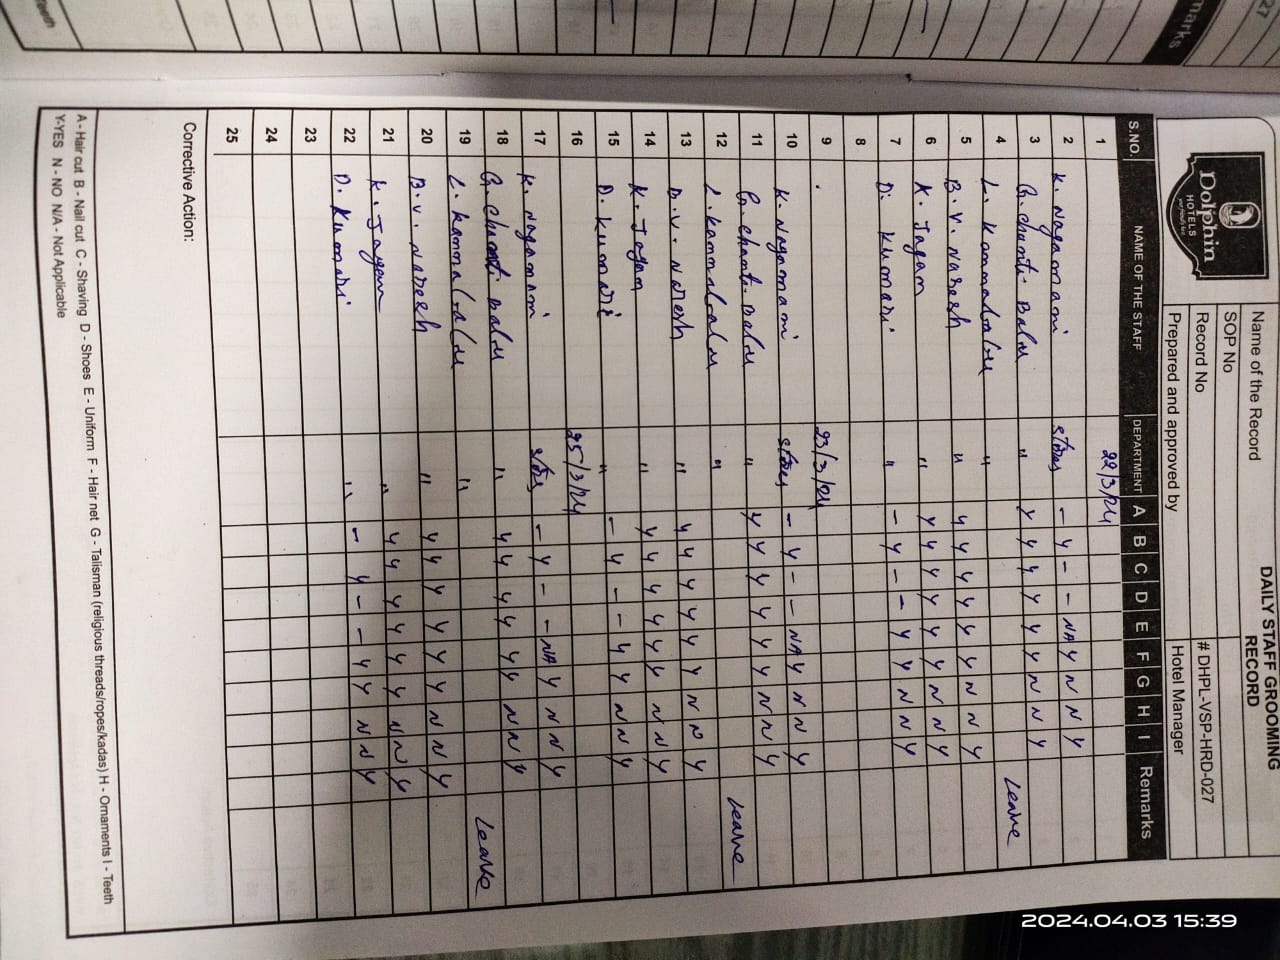 Dolphin
HOTELS
Name of the Record
DAILY STAFF GROOMING RECORD
SOP No
Record No
# DHPL-VSP-HRD-027
Prepared and approved by
Hotel Manager
S.NO. NAME OF THE STAFF DEPARTMENT A B C D E F G H I Remarks
1 22/3/24
2 K. Nagamani stores - Y - - NA Y N N Y
3 G. Chanti Babu " Y Y Y Y Y Y N N Y
4 L. Kammalalu " Leave
5 B. V. Naresh " Y Y Y Y Y N N Y
6 K. Jagan " Y Y Y Y Y Y N N Y
7 D. Kumari " - Y - - Y Y N N Y
8
9 23/3/24
10 K. Nagamani stores - Y - - NA Y N N Y
11 G. Chanti Babu " Y Y Y Y Y Y N N Y
12 L. Kammalalu " Leave
13 B. V. Naresh " Y Y Y Y Y Y N N Y
14 K. Jagan " Y Y Y Y Y Y N N Y
15 D. Kumari " - Y - - Y Y N N Y
16 25/3/24
17 K. Nagamani stores - Y - - NA Y N N Y
18 G. Chanti Babu " Y Y Y Y Y Y N N Y
19 L. Kammalalu " Leave
20 B. V. Naresh " Y Y Y Y Y Y N N Y
21 K. Jagan " Y Y Y Y Y Y N N Y
22 D. Kumari " - Y - - Y Y N N Y
23
24
25
Corrective Action:
A - Hair cut B - Nail cut C - Shaving D - Shoes E - Uniform F - Hair net G - Talisman (religious threads/ropes/kadas) H - Ornaments I - Teeth
Y-YES N - NO N/A - Not Applicable
2024.04.03 15:39